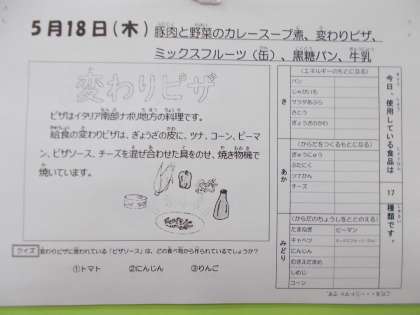 5月18日(木)
豚肉と野菜のカレースープ煮、変わりピザ、
ミックスフルーツ(缶)、黒糖パン、牛乳
変わりピザ
ピザはイタリア南部ナポリ地方の料理です。
給食の変わりピザは、ぎょうざの皮に、ツナ、コーン、ピーマ
ン、ピザソース、チーズを混ぜ合わせた具をのせ、焼き物機で
焼いています。
クイズ 変わりピザに使われている「ピザソース」は、どの食べ物から作られているでしょうか?
①トマト ②にんじん ③りんご
今日、使用している食品は 17 種類です。
き
(エネルギーのもとになる)
パン
じゃがいも
サラダあぶら
さとう
ぎょうざのかわ
あか
(からだをつくるもとになる)
ぎゅうにゅう
ぶたにく
ツナかん
チーズ
みどり
(からだのちょうしをととのえる)
たまねぎ ピーマン
キャベツ
にんじん
むきえだまめ
しめじ
コーン